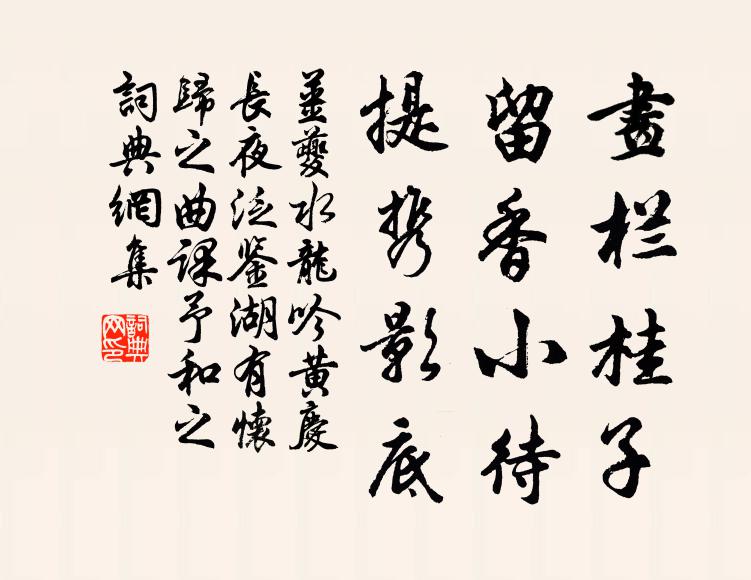 畫栏桂子
留香小待
提携影底
姜夔水龍吟黄慶
長夜泛鉴湖有懷
歸之曲課予和之
詞典網集
詞典
网印